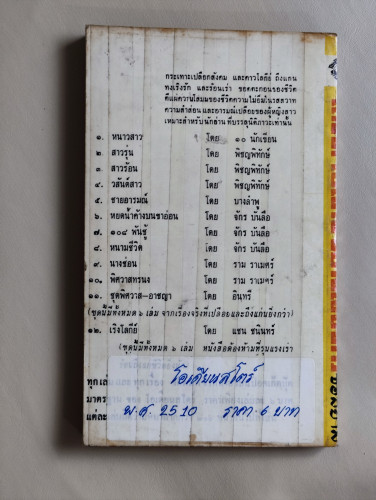 กระเทาะเปลือกสังคม และคาวโลกีย์ ถึงแก่น
ทรงเริงรัก และร้อนเร่า ยอดคะกอนของชีวิต
คือแผ่ความโสมมของชีวิตความไม่อิ่มในรสสวาท
ความลำส่อน และอารมณ์เปลือยของผู้หญิงสาว
เหมาะสำหรับนักอ่านที่บรรลุนิติภาวะเท่านั้น
๑. หนาวสาว โดย ๑๐ นักเขียน
๒. สาวรุ่น โดย พิชญพิทักษ์
๓. สาวร้อน โดย พิชญพิทักษ์
๔. วสันต์สาว โดย พิชญพิทักษ์
๕. ชายอารมณ์ โดย บางลำพู
๖. หยดน้ำค้างบนขาอ่อน โดย จักร บันลือ
๗. ๑๐๘ พันชู้ โดย จักร บันลือ
๘. หนามชีวิต โดย จักร บันลือ
๙. นางซ่อน โดย ราม ราเมศร์
๑๐. พิศวาสทรนง โดย ราม ราเมศร์
๑๑. ชุดพิศวาส-อาชญา โดย อินทรี
(ชุดนี้มีทั้งหมด ๖ เล่ม จากเรื่องจริงที่เปลือยและถึงแก่นยิ่งกว่า)
๑๒. เริงโลกีย์ โดย แซน ชนินทร์
(ชุดนี้มีทั้งหมด ๖ เล่ม หนังสือต้องห้ามที่รุนแรงเร่า
ทุกเล่
โอเดียนสโตร์
มาตร
พ.ศ. 2510 ราคา 6 บาท
แต่ละ